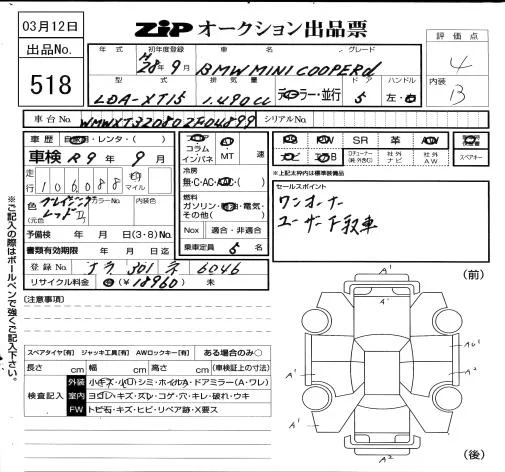 03月12日
ZIP オークション出品票
出品No.
518
評価点
4
内装
B
年式 初年度登録 車名 グレード
H 28年9月 BMW MINI COOPERd
型式 排気量 ドア ハンドル
LDA-XT15 1.490cc ディーラー・並行 5 左・右
車台No. WMWXT320802F04899 シリアルNo.
車歴 自家用・レンタ・( )
車検 R9年9月
走行 106088 km マイル
色 ブレイジングレッドⅡ カラーNo. 内装色
(元色
予備検 年 月 日(3・8)No.
書類有効期限 年 月 日迄
登録No. ナラ 301 ネ 6046
リサイクル料金 (¥18960) 未
コラム
インパネ
MT 速
冷房
無・C・AC・AAC・( )
燃料
ガソリン・軽油・電気・
その他( )
Nox 適合・非適合
乗車定員 5 名
PS PW SR 革 AW
ナビ エアB
社外
ナビ
社外
AW
スペアキー
※上記枠内は標準装備品
セールスポイント
ワンオーナー
ユーザー下取車
※ご記入の際はボールペンで強くご記入下さい。
(注意事項)
スペアタイヤ[有] ジャッキ工具[有] AWロックキー[有] ある場合のみ○
長さ cm 幅 cm 高さ cm (車検証上の寸法)
検査記入
外装 小キズ・小凹・シミ・ホイルA・ドアミラー(A・ワレ)
室内 ヨゴレ・キズ・スレ・コゲ・穴・キレ・破れ・ウキ
FW トビ石・キズ・ヒビ・リペア跡・X要ス
(前)
A'
A'
A'
A'
A²
A'
A²
(後)